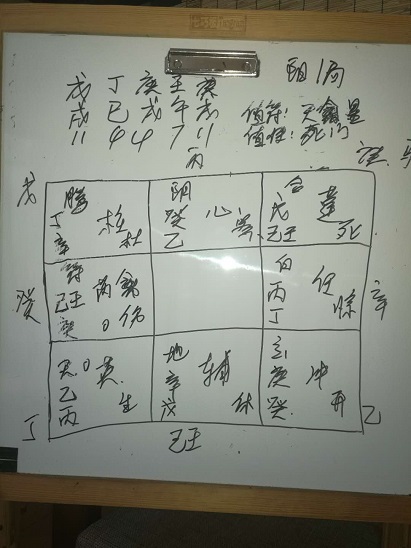 阴1局
戊 丁 庚 壬 庚
戌 巳 戌 午 戌
11 4 4 7 11
值符:天禽星
值使:死门
丙
戊
丁
辛
杜
阴
癸
乙
心
合
戊
己壬
蓬
死
癸
符
己壬
癸
禽
伤
白
丙
丁
任
惊
辛
乙
丙
生
地
辛
戊
辅
休
庚
癸
冲
开
丁
己壬
乙